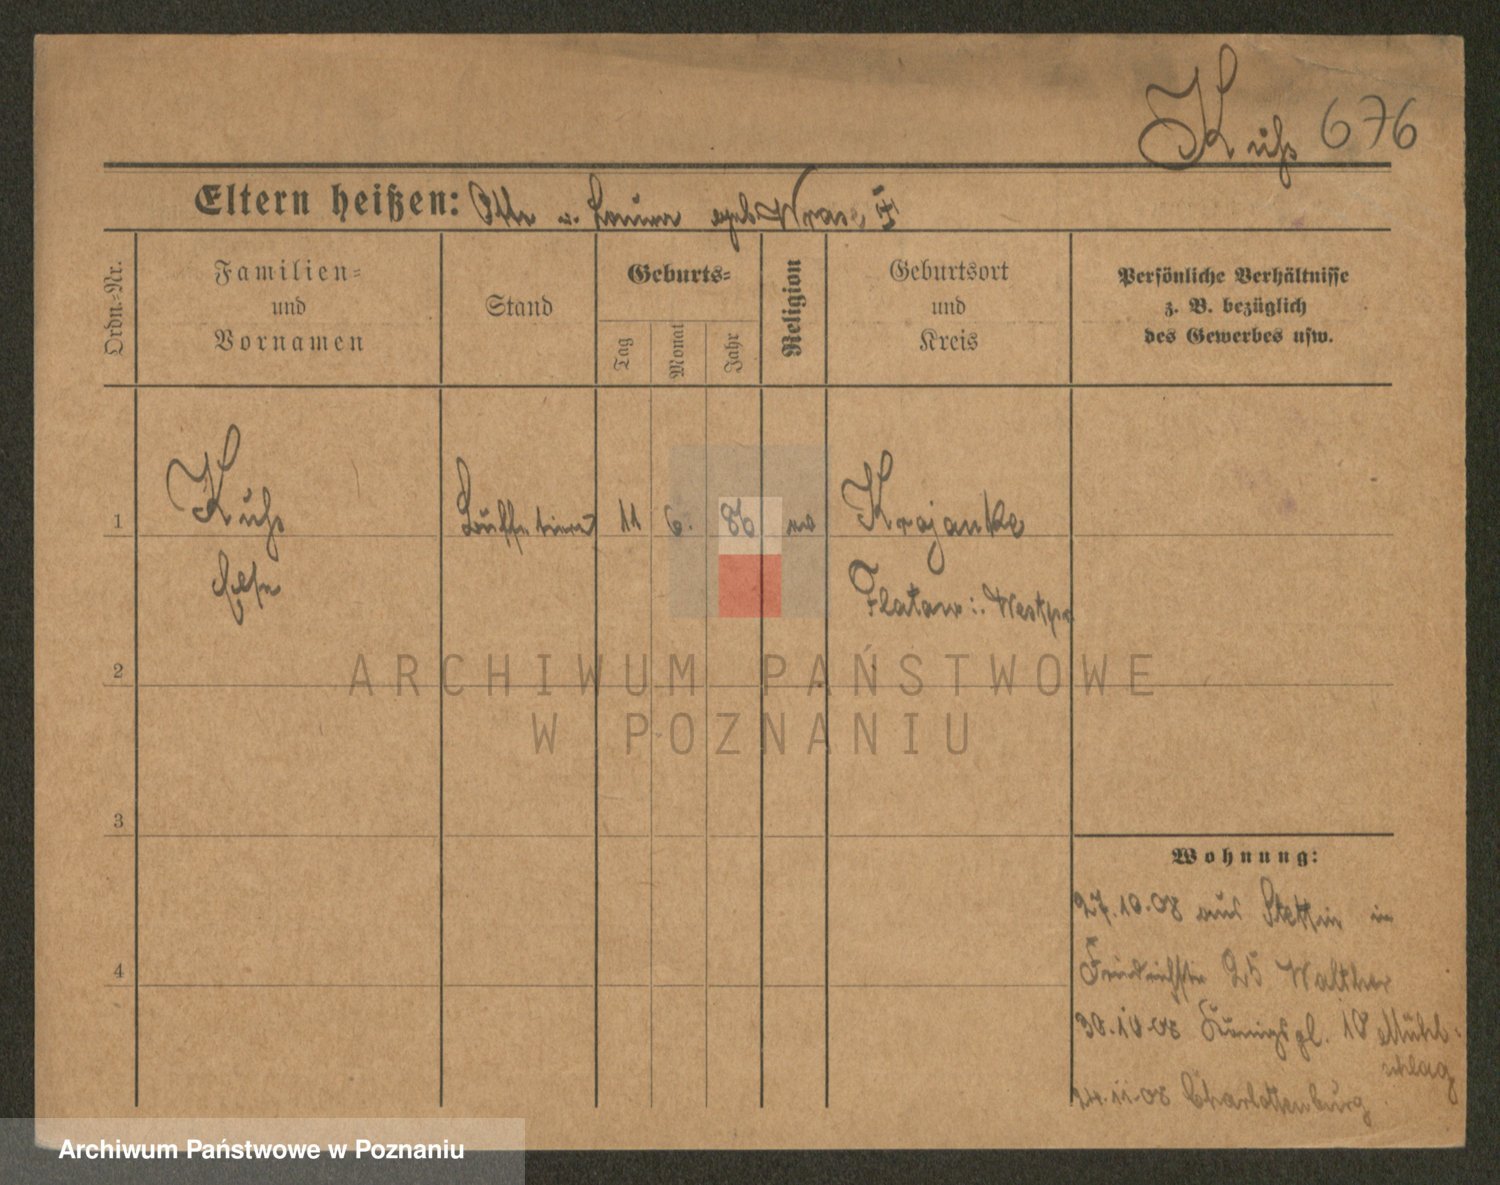 Kuhs 676
Eltern heißen: Otto u. Laura geb. Wrase
Ordn.-Nr.
Familien-
und
Vornamen
Stand
Geburts-
Tag
Monat
Jahr
Religion
Geburtsort
und
Kreis
Persönliche Verhältnisse
z. B. bezüglich
des Gewerbes usw.
1 Kuhs Büffetiere 11 6. 86 ev Krojanke
Else Flatow i. Westpr
2
ARCHIWUM PAŃSTWOWE
W POZNANIU
3
Wohnung:
27.10.08 aus Stettin in
4
Friedrichstr 25 Walther
30.10.08 Königspl. 10 Mühl-
schlag
24.11.08 Charlottenburg
Archiwum Państwowe w Poznaniu